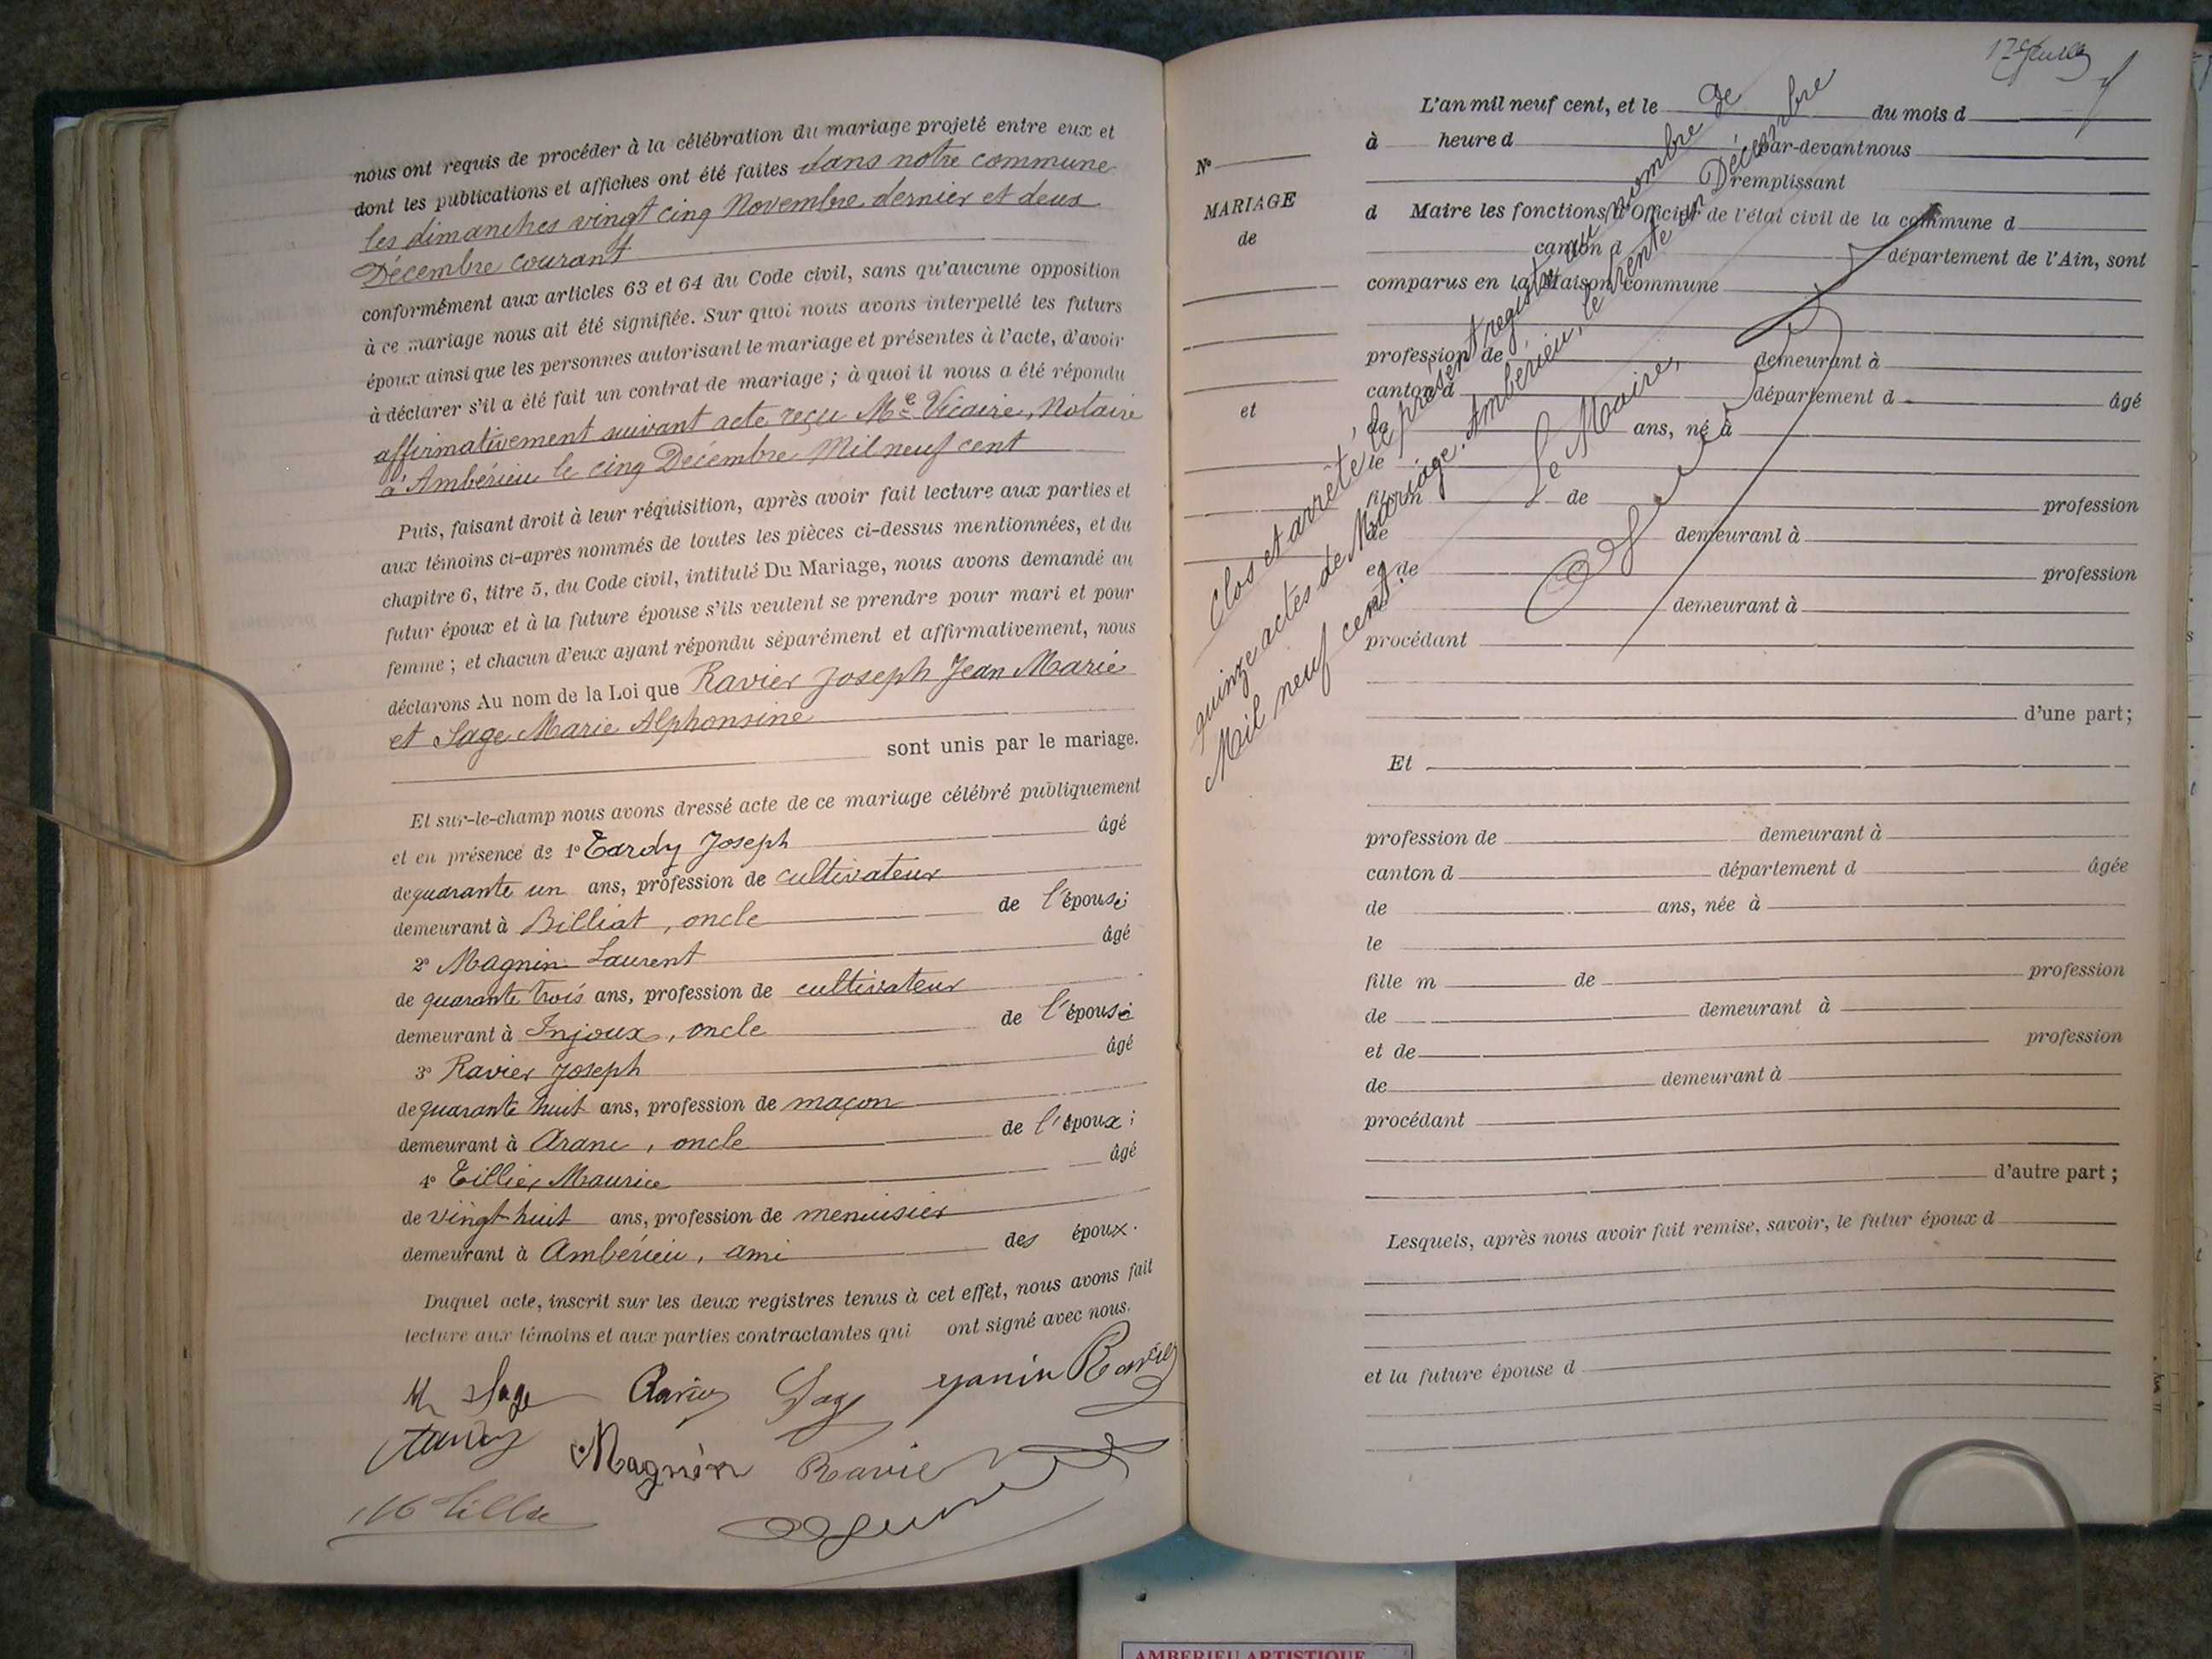 nous ont requis de procéder à la célébration du mariage projeté entre eux et
dont les publications et affiches ont été faites dans notre commune
les dimanches vingt cinq Novembre dernier et deux
Décembre courant
conformément aux articles 63 et 64 du Code civil, sans qu'aucune opposition
à ce mariage nous ait été signifiée. Sur quoi nous avons interpellé les futurs
époux ainsi que les personnes autorisant le mariage et présentes à l'acte, d'avoir
à déclarer s'il a été fait un contrat de mariage ; à quoi il nous a été répondu
affirmativement suivant acte reçu Me Vicaire, Notaire
à Ambérieu le cinq Décembre Mil neuf cent
Puis, faisant droit à leur réquisition, après avoir fait lecture aux parties et
aux témoins ci-après nommés de toutes les pièces ci-dessus mentionnées, et du
chapitre 6, titre 5, du Code civil, intitulé Du Mariage, nous avons demandé au
futur époux et à la future épouse s'ils veulent se prendre pour mari et pour
femme ; et chacun d'eux ayant répondu séparément et affirmativement, nous
déclarons Au nom de la Loi que Ravier Joseph Jean Marie
et Sage Marie Alphonsine
sont unis par le mariage.
Et sur-le-champ nous avons dressé acte de ce mariage célébré publiquement
et en présence de 1° Tardy Joseph âgé
de quarante un ans, profession de cultivateur
demeurant à Billiat, oncle de l'épouse;
2° Magnin Laurent âgé
de quarante trois ans, profession de cultivateur
demeurant à Injoux, oncle de l'épouse
3° Ravier Joseph âgé
de quarante huit ans, profession de maçon
demeurant à Aranc, oncle de l'époux;
4° Tillier Maurice âgé
de vingt huit ans, profession de menuisier
demeurant à Ambérieu, ami des époux.
Duquel acte, inscrit sur les deux registres tenus à cet effet, nous avons fait
lecture aux témoins et aux parties contractantes qui ont signé avec nous.
M Sage Ravier Sage Ravier
Tardy Magnin Ravier
L'an mil neuf cent, et le du mois d
à heure d par-devant nous
remplissant
N°
MARIAGE
de
et
d Maire les fonctions d'Officier de l'état civil de la commune d
canton d département de l'Ain, sont
comparus en la Maison commune
profession de demeurant à
canton d département d âgé
de ans, né à
le
fils m de profession
de demeurant à
et de profession
de demeurant à
procédant
d'une part;
Et
profession de demeurant à
canton d département d âgée
de ans, née à
le
fille m de profession
de demeurant à
et de profession
de demeurant à
procédant
d'autre part ;
Lesquels, après nous avoir fait remise, savoir, le futur époux d
et la future épouse d
Clos et arrêté le présent registre au nombre de
quinze actes de Mariage. Ambérieu, le trente un Décembre
Mil neuf cent.
Le Maire,
AMBERIEU ARTISTIQUE